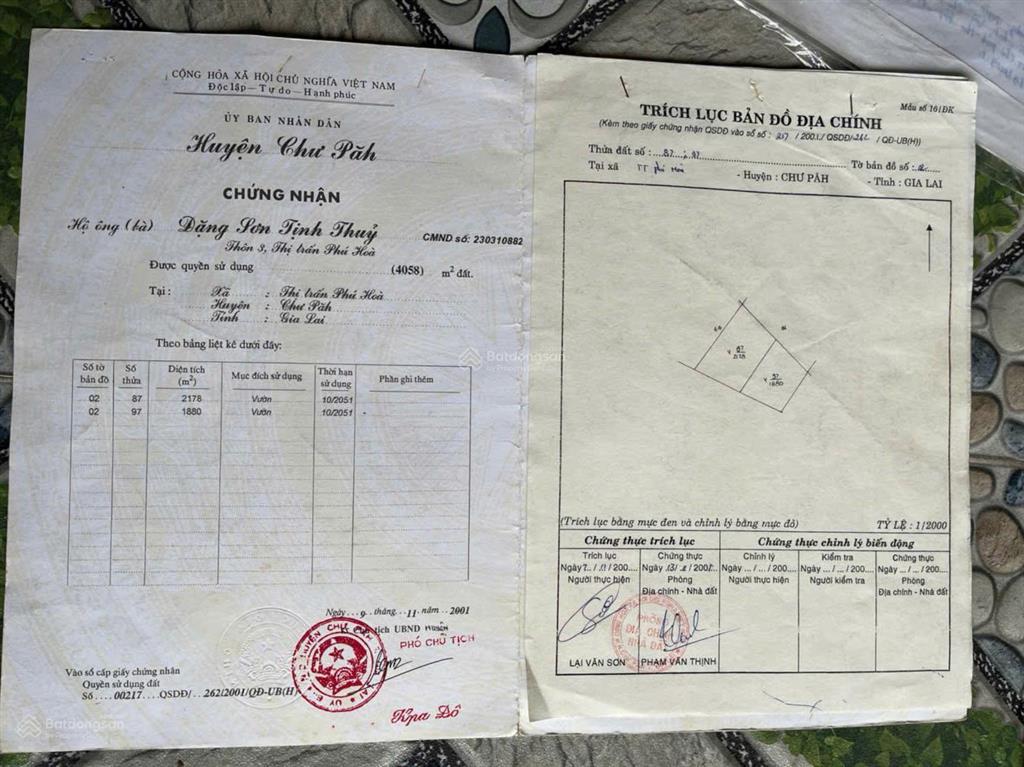 CỘNG HÒA XÃ HỘI CHỦ NGHĨA VIỆT NAM
Độc lập - Tự do - Hạnh phúc
ỦY BAN NHÂN DÂN
Huyện Chư Păh
CHỨNG NHẬN
Hộ ông (bà) Đặng Sơn Tịnh Thuỷ CMND số: 230310882
Thôn 3, Thị trấn Phú Hoà
Được quyền sử dụng (4058) m² đất.
Tại : Xã : Thị trấn Phú Hoà
Huyện : Chư Păh
Tỉnh : Gia Lai
Theo bảng liệt kê dưới đây:
Số tờ bản đồ Số thửa Diện tích (m²) Mục đích sử dụng Thời hạn sử dụng Phần ghi thêm
02 87 2178 Vườn 10/2051
02 97 1880 Vườn 10/2051 -
Ngày 9 tháng 11 năm 2001
tịch UBND Huyện
PHÓ CHỦ TỊCH
Kpa Đô
Vào sổ cấp giấy chứng nhận
Quyền sử dụng đất
Số 00217 QSDĐ/ 262/2001/QĐ-UB(H)
Mẫu số 16/ĐK
TRÍCH LỤC BẢN ĐỒ ĐỊA CHÍNH
(Kèm theo giấy chứng nhận QSDĐ vào sổ số : /200 / QSDĐ/ / QĐ-UB(H))
Thửa đất số : 87 97 Tờ bản đồ số :
Tại xã TT Phú Hoà - Huyện : CHƯ PĂH - Tỉnh : GIA LAI
87
2178
97
1880
(Trích lục bằng mực đen và chỉnh lý bằng mực đỏ) TỶ LỆ : 1/2000
Chứng thực trích lục Chứng thực chỉnh lý biến động
Trích lục Chứng thực Chỉnh lý Kiểm tra Chứng thực
Ngày / / 200 Ngày 13/ / 200 Ngày ... / ... / 200.... Ngày ... / ... / 200.... Ngày ... / ... / 200....
Người thực hiện Phòng Người thực hiện Người kiểm tra Phòng
Địa chính - Nhà đất Địa chính - Nhà đất
PHÒNG
ĐỊA CHÍNH
NHÀ ĐẤT
LẠI VĂN SƠN PHẠM VĂN THỊNH
Batdongsan
Batdongsan